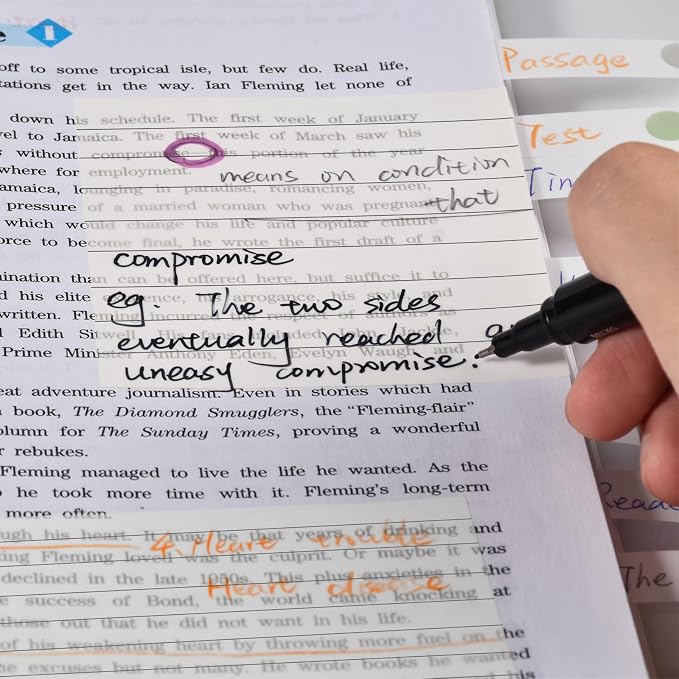 1
off to some tropical isle, but few do. Real life,
tations get in the way. Ian Fleming let none of
down his schedule. The first week of January
vel to Jamaica. The first week of March saw his
s without compromise, this portion of the year
where for employment.
means on condition
amaica, lounging in paradise, romancing women,
pressure of a married woman who was pregnant
that
which would change his life and popular culture
orce to become final, he wrote the first draft of a
compromise
ination than can be offered here, but suffice it to
eg. The two sides
d his elite arrogance, his style and
written. Fleming incurred
eventually reached a
l Edith Sitwell.
Prime Minister Anthony Eden, Evelyn Waugh, and
uneasy compromise.
eat adventure journalism. Even in stories which had
book, The Diamond Smugglers, the “Fleming-flair”
olumn for The Sunday Times, proving a wonderful
r rebukes.
Fleming managed to live the life he wanted. As the
he took more time with it. Fleming's long-term
more often.
ugh his heart. It may be that years of drinking and
4. Heart trouble
ing Fleming loved was the culprit. Or maybe it was
declined in the late 1950s. This plus anxieties in the
Heart disease
e success of Bond, the world came knocking at
those out that he did not want in his life.
of his weakening heart by throwing more fuel on the
he excuses but not many. He wrote books he wanted
his
Passage
Test
Tin
Reade
The